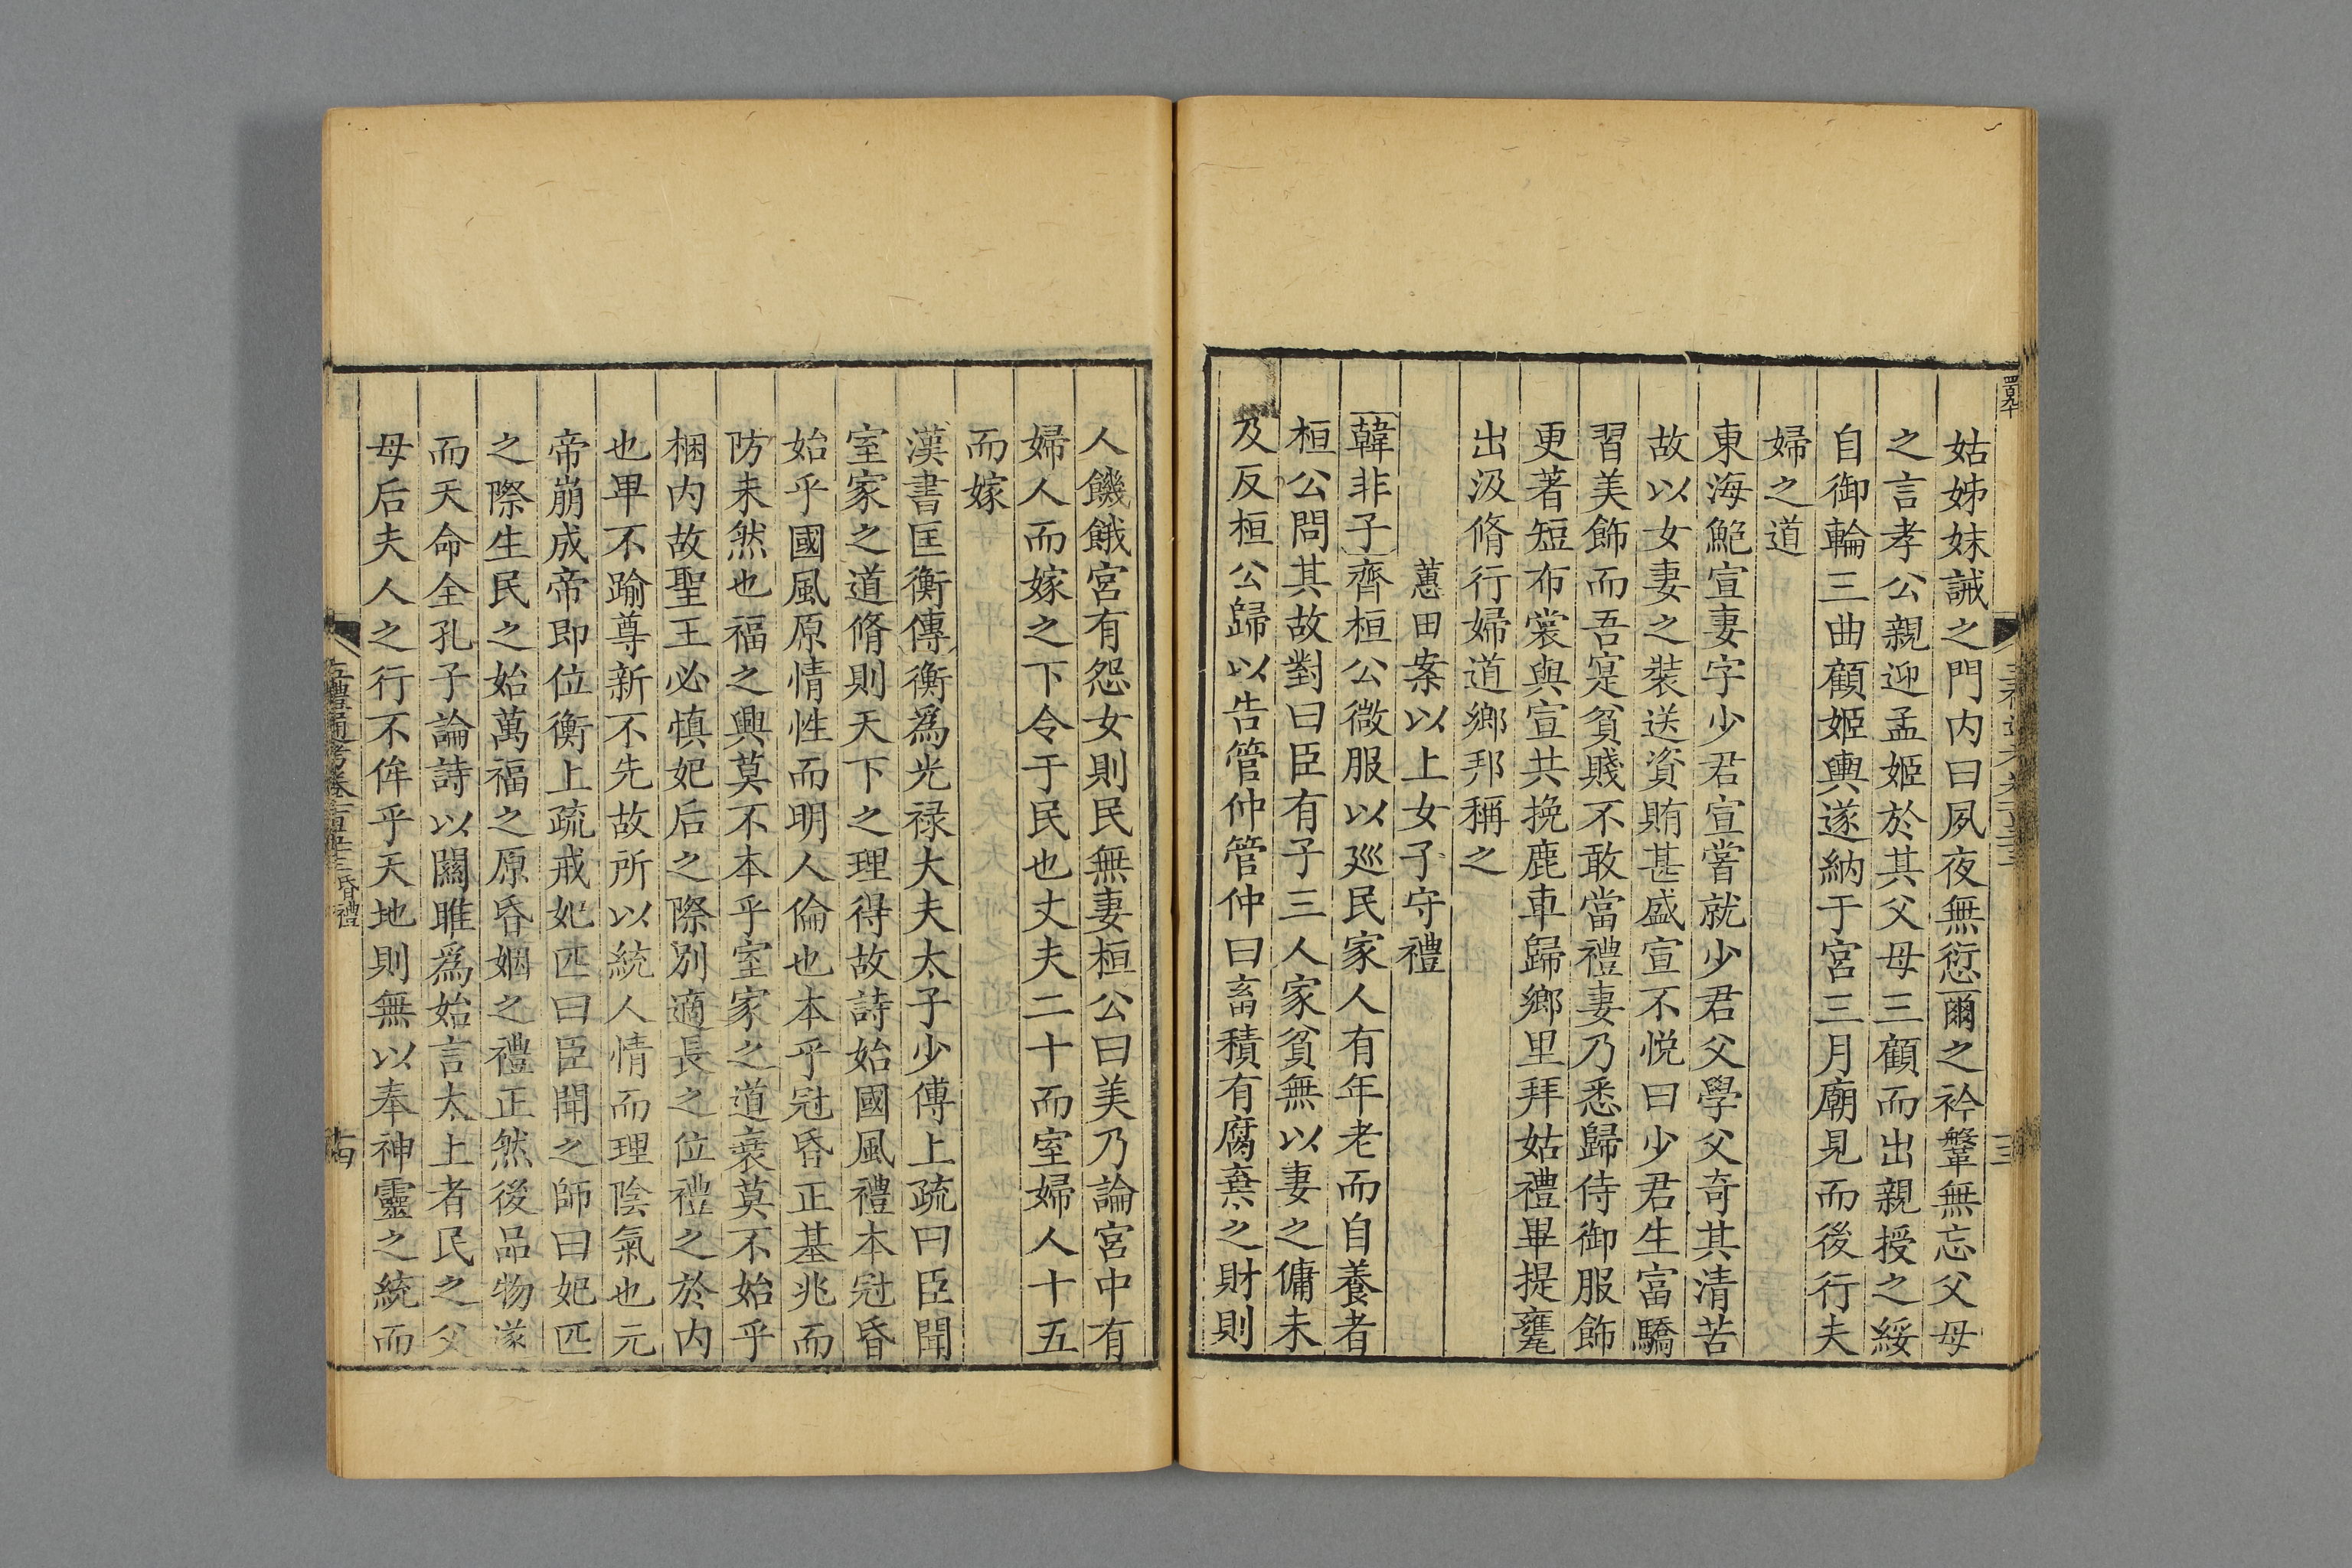 姑姊妹誡之門内曰夙夜無愆爾之衿鞶無忘父母
之言孝公親迎孟姬於其父母三顧而出親授之綏
自御輪三曲顧姬輿遂納于宮三月廟見而後行夫
婦之道
東海鮑宣妻字少君宣嘗就少君父學父奇其清苦
故以女妻之裝送資賄甚盛宣不悦曰少君生富驕
習美飾而吾寔貧賤不敢當禮妻乃悉歸侍御服飾
更著短布裳與宣共挽鹿車歸鄉里拜姑禮畢提甕
出汲脩行婦道鄉邦稱之
蕙田案以上女子守禮
韓非子齊桓公微服以廵民家人有年老而自養者
桓公問其故對曰臣有子三人家貧無以妻之傭未
及反桓公歸以告管仲管仲曰畜積有腐棄之財則
人饑餓宮有怨女則民無妻桓公曰美乃論宮中有
婦人而嫁之下令于民也丈夫二十而室婦人十五
而嫁
漢書匡衡傳衡爲光禄大夫太子少傅上疏曰臣聞
室家之道脩則天下之理得故詩始國風禮本冠昏
始乎國風原情性而明人倫也本乎冠昏正基兆而
防未然也福之興莫不本乎室家之道衰莫不始乎
梱内故聖王必慎妃后之際别適長之位禮之於内
也卑不踰尊新不先故所以統人情而理陰氣也元
帝崩成帝即位衡上疏戒妃匹曰臣聞之師曰妃匹
之際生民之始萬福之原昏姻之禮正然後品物遂
而天命全孔子論詩以關雎爲始言太上者民之父
母后夫人之行不侔乎天地則無以奉神靈之統而
五禮通考卷一百五十三 昏禮
十四